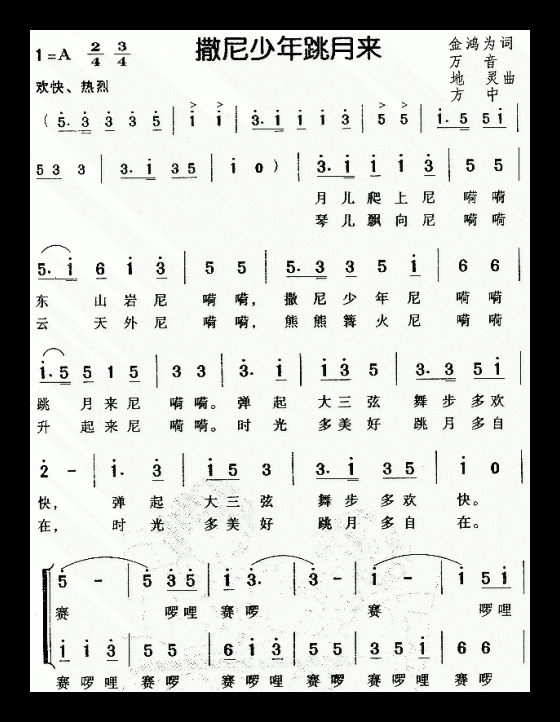 撒尼少年跳月来
1=A 2/4 3/4
金鸿为词
万音
地灵曲
方中
欢快、热烈
( 5. 3 3 3 5 | i i | 3. i i i 3 | 5 5 | i. 5 5 i |
5 3 3 | 3. i 3 5 | i 0 ) | 3. i i i 3 | 5 5
月 儿 爬 上 尼 嗬 嗬
琴 儿 飘 向 尼 嗬 嗬
5. i 6 i 3 | 5 5 | 5. 3 3 5 i | 6 6
东 山 岩 尼 嗬 嗬, 撒 尼 少 年 尼 嗬 嗬
云 天 外 尼 嗬 嗬, 熊 熊 篝 火 尼 嗬 嗬
i. 5 5 1 5 | 3 3 | 3. i | i 3 5 | 3. 3 5 i
跳 月 来 尼 嗬 嗬。 弹 起 大 三 弦 舞 步 多 欢
升 起 来 尼 嗬 嗬。 时 光 多 美 好 跳 月 多 自
2 - | i. 3 | i 5 3 | 3. i 3 5 | i 0
快, 弹 起 大 三 弦 舞 步 多 欢 快。
在, 时 光 多 美 好 跳 月 多 自 在。
5 - | 5 3 5 | i 3. | 3 - | i - | i 5 i
赛 啰 哩 赛 啰 赛 啰 哩
i i 3 | 5 5 | 6 i 3 | 5 5 | 3 5 i | 6 6
赛 啰 哩 赛 啰 赛 啰 哩 赛 啰 赛 啰 哩 赛 啰